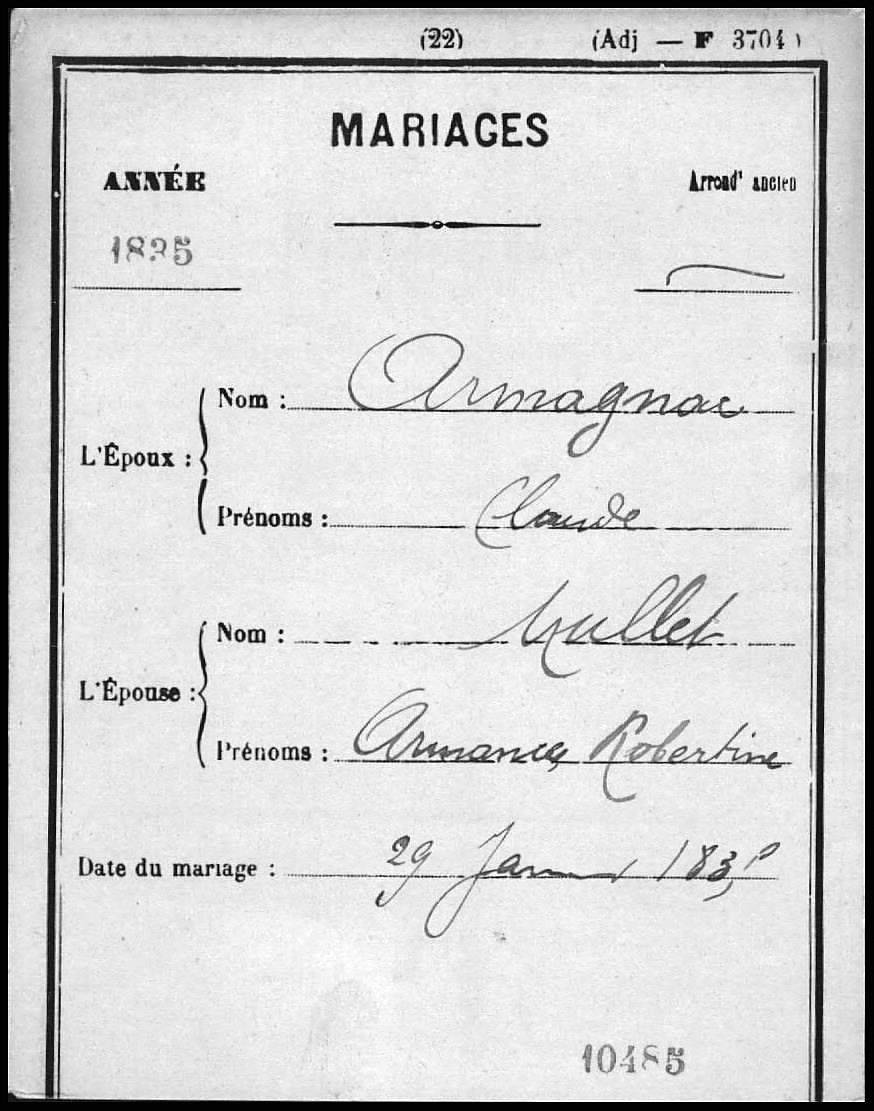 (22) (Adj — F 3704)
MARIAGES
ANNÉE
Arrond^t ancien
1835
L'Époux :
Nom : Armagnac
Prénoms : Claude
L'Épouse :
Nom : Mullet
Prénoms : Armance, Robertine
Date du mariage : 29 Janvier 1835
10485